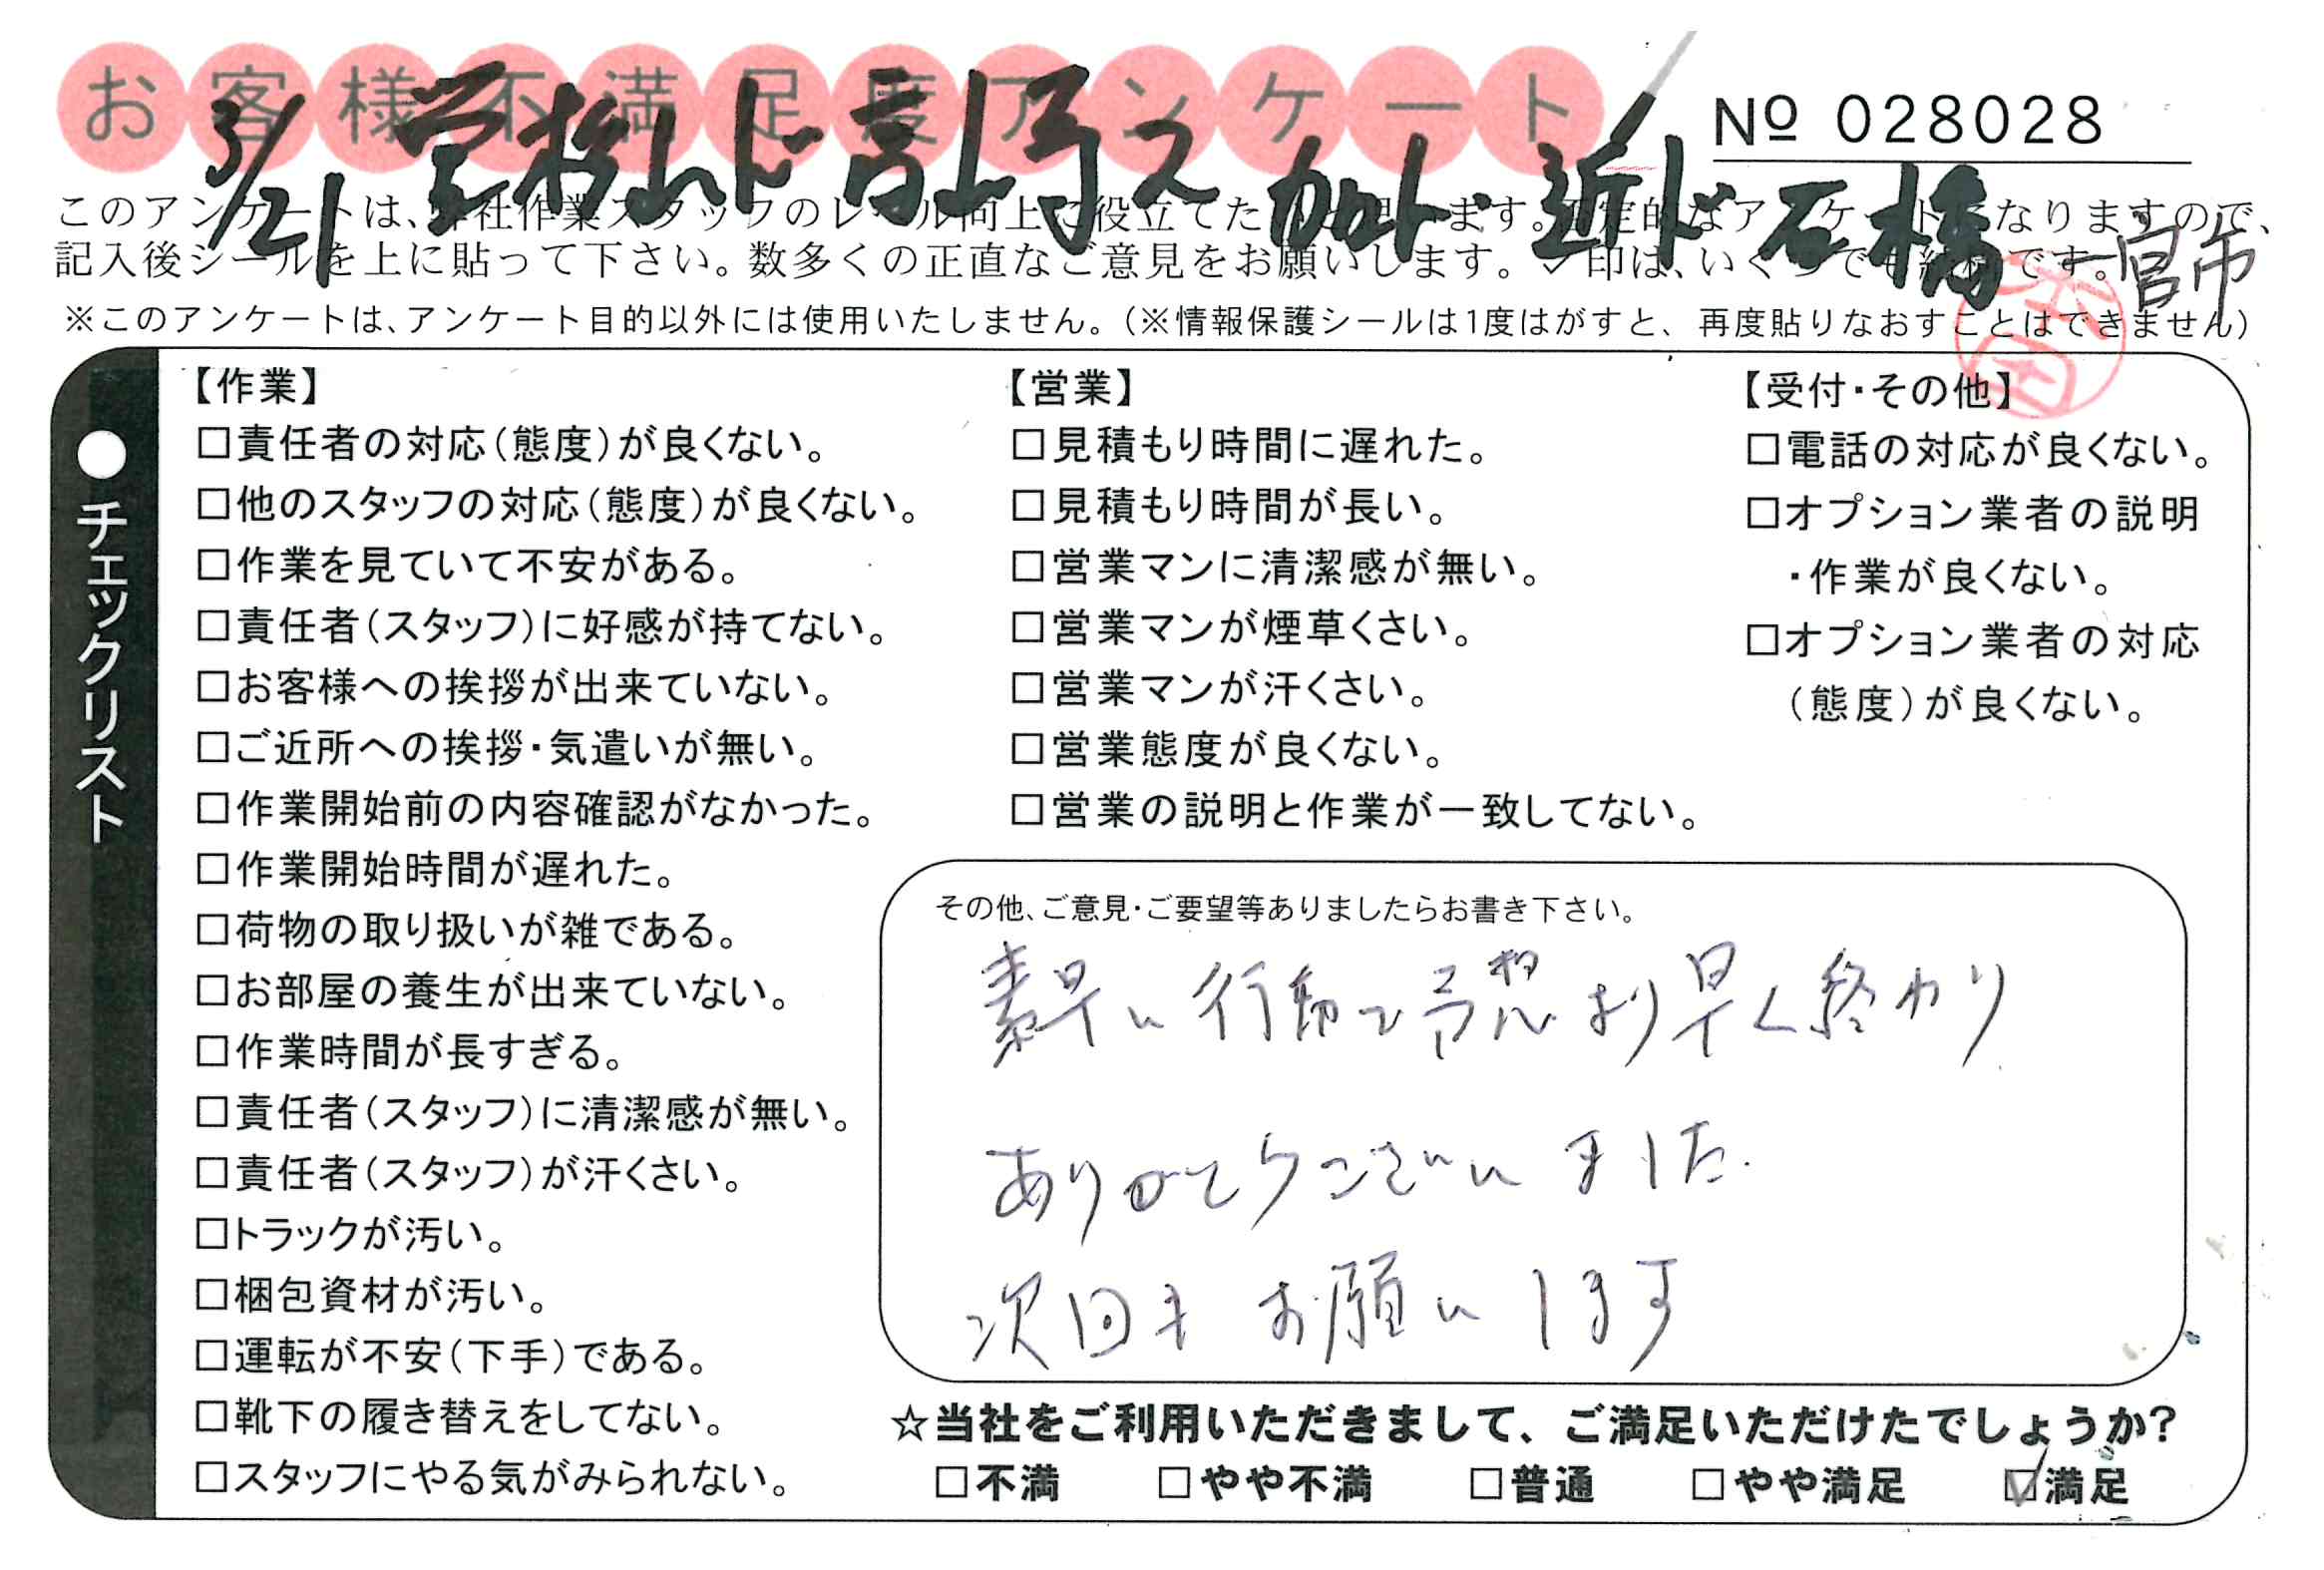 お客様不満足度アンケート
№ 028028
3/21
石橋
一宮市
このアンケートは、弊社作業スタッフのレベル向上に役立てたいと思います。否定的なアンケートになりますので、
記入後シールを上に貼って下さい。数多くの正直なご意見をお願いします。✓印は、いくつでも結構です。
※このアンケートは、アンケート目的以外には使用いたしません。(※情報保護シールは1度はがすと、再度貼りなおすことはできません)
●チェックリスト
【作業】
□責任者の対応(態度)が良くない。
□他のスタッフの対応(態度)が良くない。
□作業を見ていて不安がある。
□責任者(スタッフ)に好感が持てない。
□お客様への挨拶が出来ていない。
□ご近所への挨拶・気遣いが無い。
□作業開始前の内容確認がなかった。
□作業開始時間が遅れた。
□荷物の取り扱いが雑である。
□お部屋の養生が出来ていない。
□作業時間が長すぎる。
□責任者(スタッフ)に清潔感が無い。
□責任者(スタッフ)が汗くさい。
□トラックが汚い。
□梱包資材が汚い。
□運転が不安(下手)である。
□靴下の履き替えをしてない。
□スタッフにやる気がみられない。
【営業】
□見積もり時間に遅れた。
□見積もり時間が長い。
□営業マンに清潔感が無い。
□営業マンが煙草くさい。
□営業マンが汗くさい。
□営業態度が良くない。
□営業の説明と作業が一致してない。
【受付・その他】
□電話の対応が良くない。
□オプション業者の説明
・作業が良くない。
□オプション業者の対応
(態度)が良くない。
その他、ご意見・ご要望等ありましたらお書き下さい。
素早い行動で予想より早く終わり
ありがとうございました.
次回もお願いします
☆当社をご利用いただきまして、ご満足いただけたでしょうか?
□不満 □やや不満 □普通 □やや満足 ☑満足